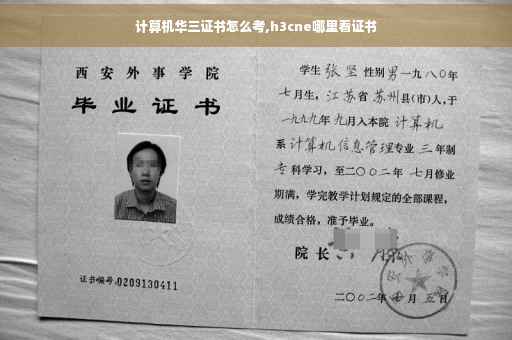 计算机华三证书怎么考,h3cne哪里看证书
西安外事学院
毕业证书
证书编号:0209130411
学生 张坚 性别 男 一九八〇年
七月生, 江苏省 苏州县(市)人, 于
一九九九年 九月入本院 计算机
系 计算机信息管理专业 三 年制
专 科学习, 至二〇〇二年 七月修业
期满, 学完教学计划规定的全部课程,
成绩合格, 准予毕业。
院长
二〇〇二年 月 五日